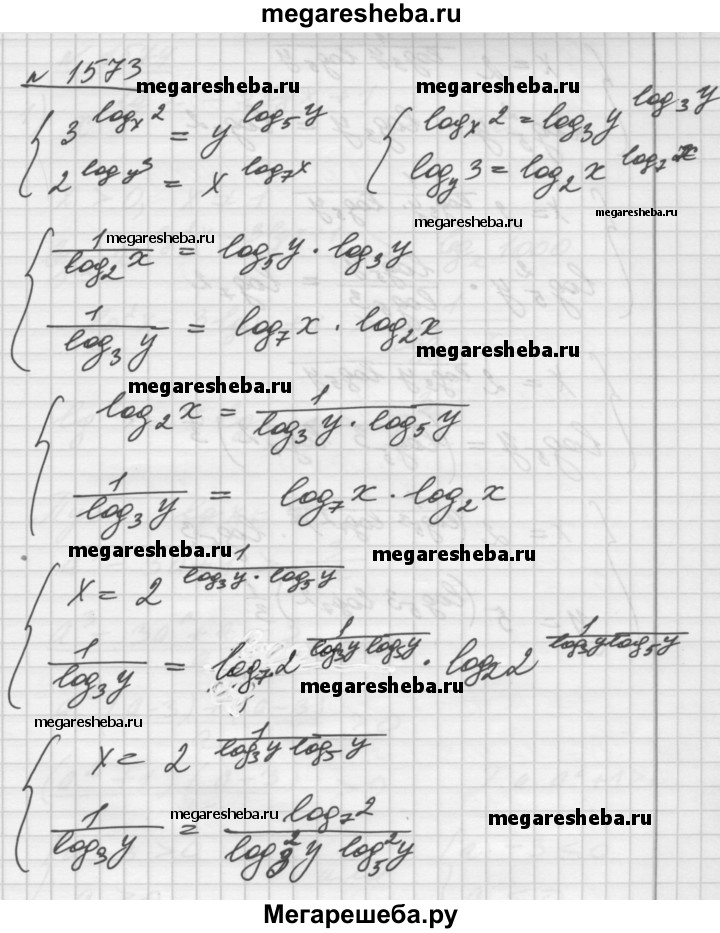 megaresheba.ru
№ 1573
megaresheba.ru megaresheba.ru
{ 3^(log_x 2) = y^(log_5 y) { log_x 2 = log_3 y^(log_3 y)
{ 2^(log_y 3) = x^(log_7 x) { log_y 3 = log_2 x^(log_7 x)
megaresheba.ru megaresheba.ru
megaresheba.ru
{ 1/(log_2 x) = log_5 y · log_3 y
{ 1/(log_3 y) = log_7 x · log_2 x
megaresheba.ru
megaresheba.ru
{ log_2 x = 1/(log_3 y · log_5 y)
{ 1/(log_3 y) = log_7 x · log_2 x
megaresheba.ru megaresheba.ru
{ x = 2^(1/(log_3 y · log_5 y))
{ 1/(log_3 y) = log_7 2^(1/(log_3 y log_5 y)) · log_2 2^(1/(log_3 y log_5 y))
megaresheba.ru
megaresheba.ru
{ x = 2^(1/(log_3 y log_5 y))
{ 1/(log_3 y) = (log_7 2)/(log_3^2 y log_5^2 y)
megaresheba.ru megaresheba.ru
Мегарешеба.ру